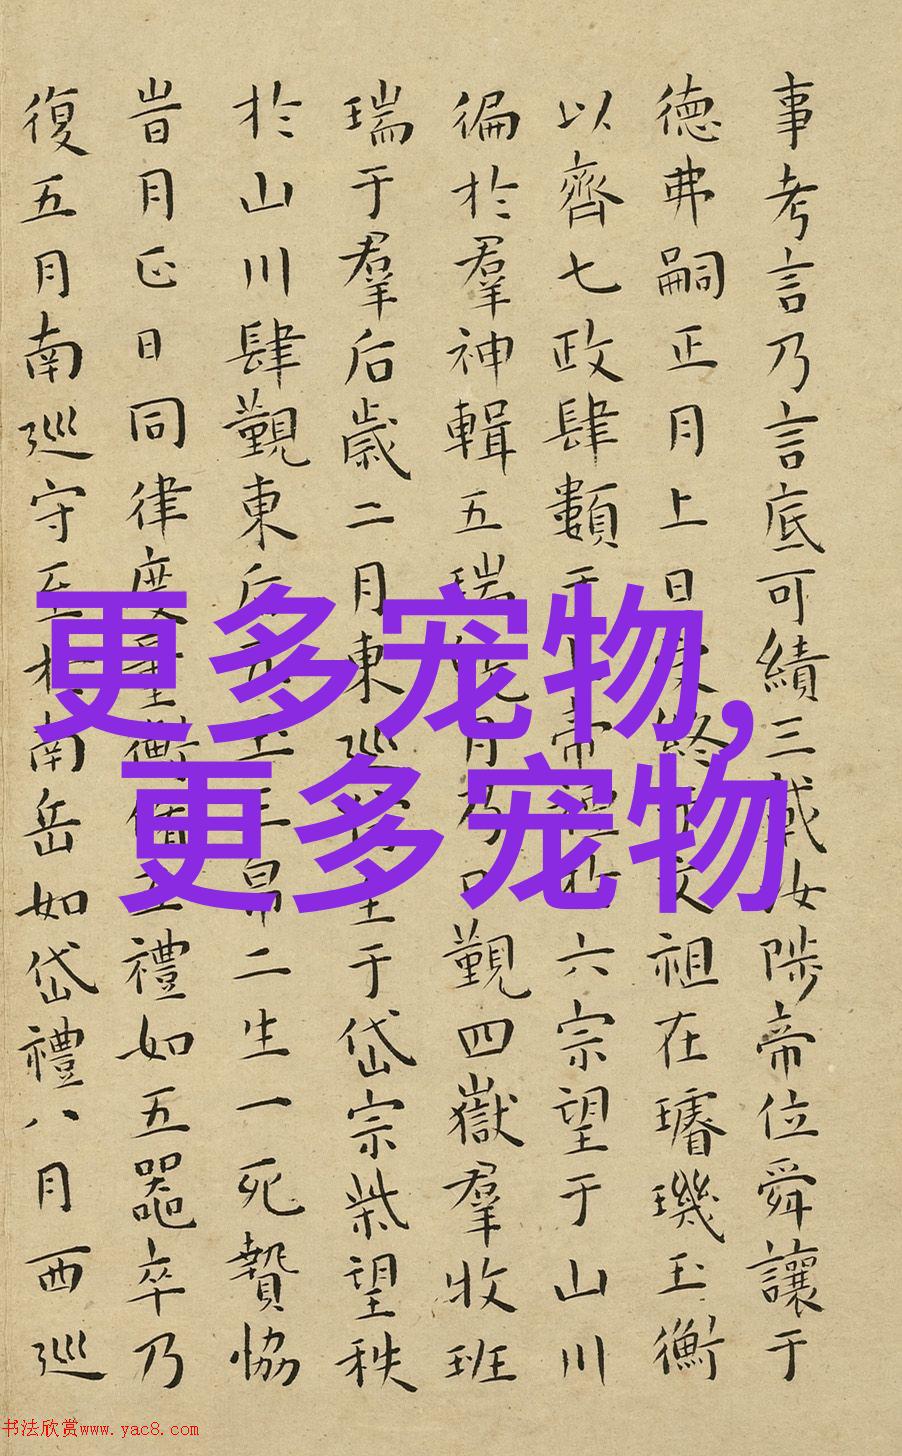 事考言乃言底可績三載汝陟帝位舜讓于
德弗嗣正月上日受終于文祖在璿璣玉衡
以齊七政肆類于上帝禋於六宗望于山川
徧於羣神輯五瑞既月乃日覲四嶽羣收班
瑞于羣后歲二月東巡守至于岱宗柴望秩
於山川肆覲東后五玉三帛二生一死贄協
旹月正日同律度量衡脩五禮如五器卒乃
復五月南巡守至於南岳如岱禮八月西巡
更多宠物,
更多宠物
书法欣赏www.yac8.com